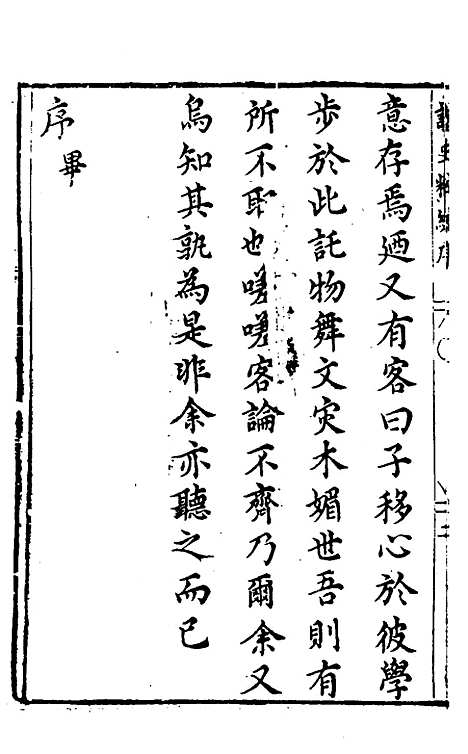 意存焉廼又有客曰子移心於彼學
步於此託物舞文灾木媚世吾則有
所不耶也嗟嗟客論不齊乃爾余又
烏知其孰為是非余亦聽之而已
序畢